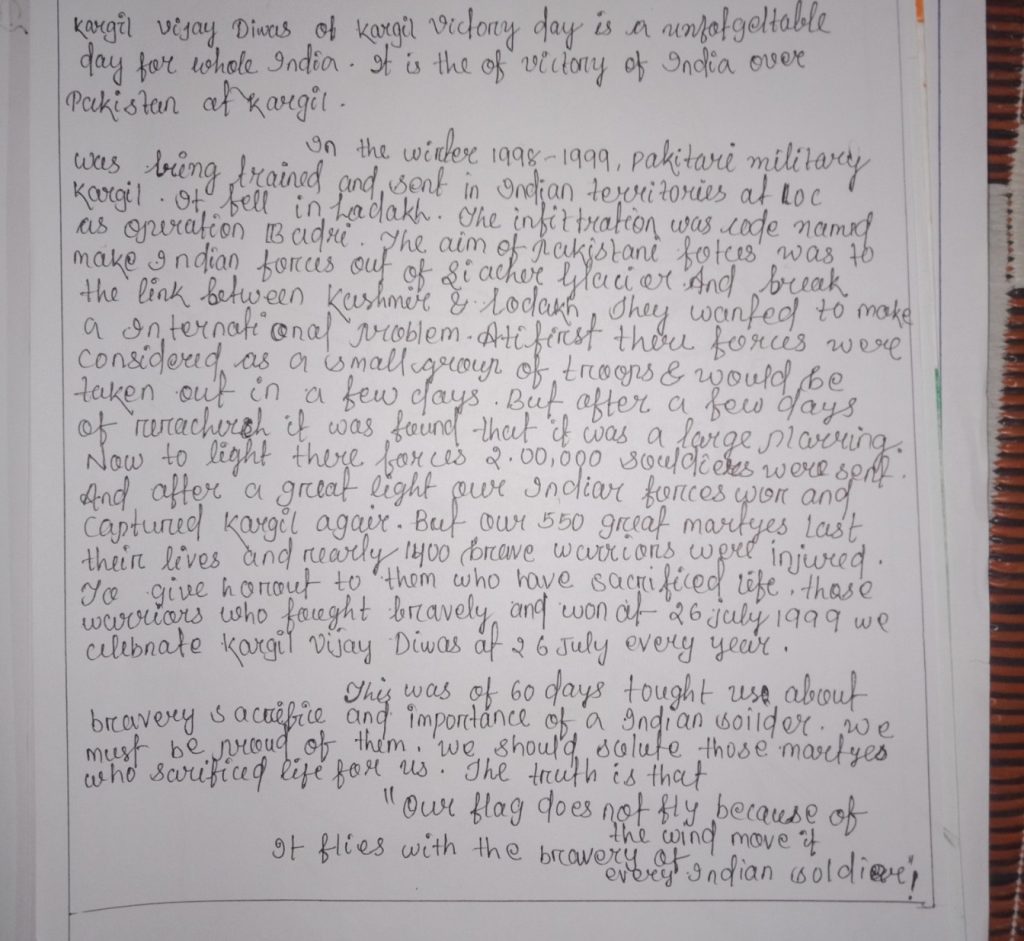 Kargil Vijay Diwas of Kargil Victory day is a unfofgettable
day for whole India. It is the of victory of India over
Pakistan at Kargil.
In the winter 1998-1999, pakitani military
was being trained and sent in Indian territories at LOC
Kargil. It fell in Ladakh. The infittration was code named
as operation Badri. The aim of Pakistani fotces was to
make Indian forces out of Siacher Glacier. And break
the link between Kashmir & Lodakh. They wanted to make
a International problem. At first these forces were
considered as a small group of troops & would be
taken out in a few days. But after a few days
of it was found that it was a large planning.
Now to light there forces 2.00,000 souldiers were sent.
And after a great light our Indian forces won and
captured Kargil again. But our 550 great martyes last
their lives and nearly 1400 brave warriors were injured.
To give honout to them who have sacrificed life. those
warriors who fought bravely and won at 26 july 1999 we
celebnate Kargil Vijay Diwas at 26 July every year.
This was of 60 days tought use about
bravery sacrifice and importance of a Indian soilder. we
must be proud of them. we should salute those martyes
who sacrificed life for us. The truth is that
"Our flag does not fly because of
the wind move it
It flies with the bravery of
every Indian soldier"!